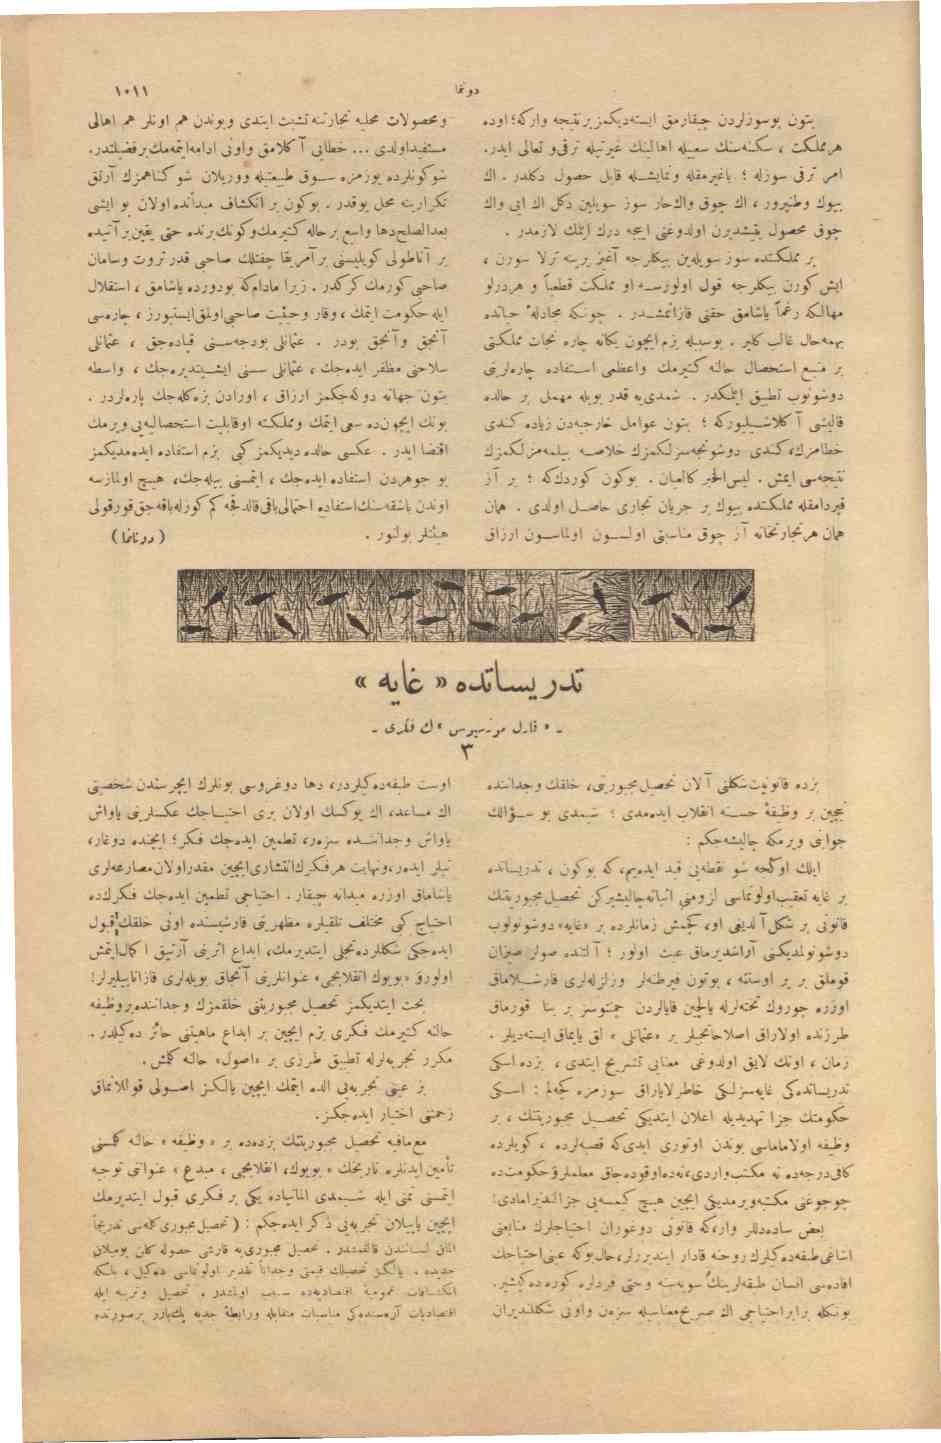 دوننما
١٠١١
بتون بوسوزلردن چیقارمق ایسته‌دیكمز بر نتیجه واركه؛ اوده
هر مملكت ، سكنه‌سنك سعییله اهالینك غیرتیله ترقی و تعالی ایدر.
امر ترقی سوزله ؛ باغیرمقله ونمایشــله قابل حصول دكلدر . اك
بیوك وطنپرور ، اك چوق واك حار سوز سویلین دكل اك ایی واك
چوق محصول یتیشدیرن اولدوغنی اییجه درك ایتمك لازمدر .
بر مملكتده سوز سویله‌ین بیكلرجه آغیز یرینه ترلا سورن ،
ایش كورن بیكلرجه قول اولورسـه او مملكت قطعیاً و هردرلو
مهالكه رغماً یاشامق حقنی قازانمشــدر . چونكه مجادلهٔ حیاتده
بهمه‌حال غالب كلیر . بوسببله بزم ایچون یكانه چاره نجات مملكتی
بر منبع استحصال حالنه كتیرمك واعظمی اســتفاده چاره‌لرینی
دوشونوب تطبیق ایتمكدر . شمدی‌یه قدر بویله مهمل بر حالده
قالیشی آكلاشــیلیوركه ؛ بتون عوامل خارجیه‌دن زیاده كـندی
خطامزك، كندی دوشونجه‌سزلكمزك خلاصــه بیلمه‌مزلكمزك
نتیجه‌سی ایمش . لیس الخبر كالعیان . بوكون كوردك‌كه ؛ بر آز
قیردامقله مملكتده بیوك بر جریان تجاری حاصــل اولدی . همان
همان هر تجارتخانه آز چوق مناسبتی اولســون اولماسـون ارزاق
ومحصولات محلیه تجارتنه تشبث ایتدی وبوندن هم اونلر هم اهالی
مستفید اولدی ... خطایی آكلامق واونی ادامه ایتمه‌مك بر فضیلتدر.
شو كونلرده یوزمزه ســوق طبیعتیله ووریلان شو كناهمزك آرتق
تكرارینه محل یوقدر . بوكون بر انكشاف مبدأنده اولان بو ایشی
بعدالصلح دها واسع بر حاله كتیرمك وكونك برنده حتی یقین بر آتیده
بر آناطولی كویلیسنی بر آمریقا چفتلك صاحبی قدر ثروت وسامان
صاحبی كورمك كركدر . زیرا مادام‌كه بودورده یاشامق ، استقلال
ایله حكومت ایتمك ، وقار وحیثیت صاحبی اولمق ایستیورز ، چاره‌سی
آنجق و آنجق بودر . عثمانلی بودجه‌ســنی قپاده‌جق ، عثمانلی
سلاحنی مظفر ایده‌جك ، عثمانلی سسنی ایشــیتدیره‌جك ، واسطه
بتون جهانه دوكه‌جكمز ارزاق ، اورادن بزه كله‌جك پاره‌لردر .
بونك ایچون‌ده سعی ایتمك ومملكته او قابلیت استحصالیه‌یی ویرمك
اقتضا ایدر . عكسی حالده دیدیكمز كبی بزم استفاده ایده‌مدیكمز
بو جوهردن استفاده ایده‌جك ، ایتمسنی بیله‌جك، هیــچ اولمازسه
اوندن باشقه‌سنك استفاده احتمالی باقی قالدقجه كم كوزله باقه‌جق قورقولی
هیئتلر بولنور .
( دوننما )
تدریساتده « غایه »
ـ « قارل موزیوس » ك فكری ـ
٣
بزده قانونیت شكلنی آلان تحصیل مجبوریتی، خلقك وجداننده
نیچین بر وظیفهٔ حســنه انقلاب ایده‌مدی ؛ شیمدی بو ســؤالك
جوابنی ویرمكه چالیشه‌جكم :
ایلك اوكجه شو نقطه‌یی قید ایده‌ییم، كه بوكون ، تدریساتده
بر غایه تعقیب اولونماسی لزومنی اثباته چالیشیركن تحصیل مجبوریتنك
قانونی بر شكل آلدیغی او، كچمش زمانلرده بر «غایه» دوشونولوب
دوشونولمدیكنی آراشدیرمق عبث اولور ؛ آلتنده صولر صیزان
قوملق بر یر اوستنه ، بوتون فیرطنه‌لر وزلزله‌لری قارشــیلامق
اوزره چوروك تخته‌لرله یالچین قایالردن چمنتوسز بر بنا قورماق
طرزنده اولاراق اصلاحاتجیلر بر «عثمانلی» لق یاپماق ایسته‌دیلر .
زمان ، اونك لایق اولدوغی معنایی تشریح ایتدی ، بزده اسكی
تدریساتده‌كی غایه‌سزلكی خاطرلایاراق سوزمزه كچه‌لم : اســكی
حكومتك جزا تهدیدیله اعلان ایتدیكی تحصیــل مجبوریتنك ، بر
وظیفه اولاماماسی بوندن اوتوری ایدی كه قصبه‌لرده ، كویلرده
كافی درجه‌ده نه مكتب واردی، نه‌ده اوقوده‌جاق معلملر ؛ حكومت‌ده
چوجوغنی مكتبه ویرمدیكی ایچین هیــچ كیمسه‌یی جزالندیرامادی؛
بعض ساده‌دللر وار،كه قانونی دوغوران احتیاجلرك منابعنی
اشاغی طبقه‌ده‌كیلرك روحنه قادار ایندیررلر، حال‌بوكه عینی احتیاجك
افاده‌سی انسان طبقه‌لرینك سویه‌سنه وحتی فردلره كوره ده‌كیشیر.
بونكله برابر احتیاجی اك صریح معناسیله سزه‌ن واونی شكللندیران
اوست طبقه‌ده‌كیلردر، دها دوغروسی بونلرك ایچریسندن شخصیتی
اك مســاعد، اك یوكسك اولان بری احتیــاجك عكسلرینی یاواش
یاواش وجداننــده سزه‌ر، تطمین ایده‌جك فكر؛ ایچنده دوغار،
تبلر ایده‌ر، ونهایت هر فكرك انتشاری ایچین مقدر اولان مصارعه‌لری
یاشاماق اوزره میدانه چیقار . احتیاجی تطمین ایده‌جك فكرك‌ده
احتیاج كبی مختلف تلقیلره مظهریتی قارشیسنده اونی خلقك قبول
ایده‌جكی شكللرده تجلی ایتدیرمك، ابداع اثرینی آرتیق اكمال ایتمش
اولور. «بویوك انقلابجی» عنوانلرینی آنجاق بویله‌لری قازانابیلیرلر:
بحث ایتدیكمز تحصیل مجبوریتنی خلقمزك وجداننده بر وظیفه
حالنه كتیرمك فكری بزم ایچین بر ابداع ماهیتنی حائز ده‌كیلدر .
مكرر تجربه‌لرله تطبیق طرزی بر «اصول» حالنه كلمش .
بز عینی تجربه‌یی الده ایتمك ایچین یالكـز اصــولی قوللانماق
زحمتنی اختیار ایده‌جكـز.
مع‌مافیه تحصیل مجبوریتنك بزده‌ده بر « وظیفه » حالنه كلمسنی
تأمین ایدنلره تاریخك « بویوك، انقلابجی ، مبدع » عنوانی توجیه
ایتمسنی تمنی ایله شــیمدی المانیاده یكی بر فكری قبول ایتدیرمك
ایچین یاپیلان تجربه‌یی ذكر ایده‌جكم : ( تحصیل مجبوری كله‌سی تدریجاً
المان لســانندن قالقمقده‌در . تحصیل مجبوری‌یه قارشی حصوله كلن بومیلان
جدیده . یالكـز تحصیلك قیمتی وجداناً تقدیر اولونماسی ده‌كیل ، بلـكه
انكشــافات عمومیهٔ اقتصادیه‌ده ســبب اولمقدر . تحصیل وتربیه ایله
اقتصادیات آره‌سنده‌كی مناسبات متقابله ورابطهٔ جدیه یك‌بارز برصورتده